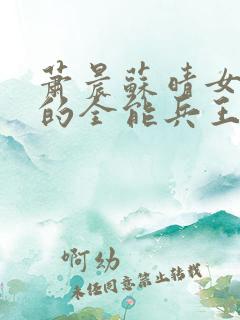 萧晨蘇晴女
的全能兵王
啊幼
未经同意禁止转载